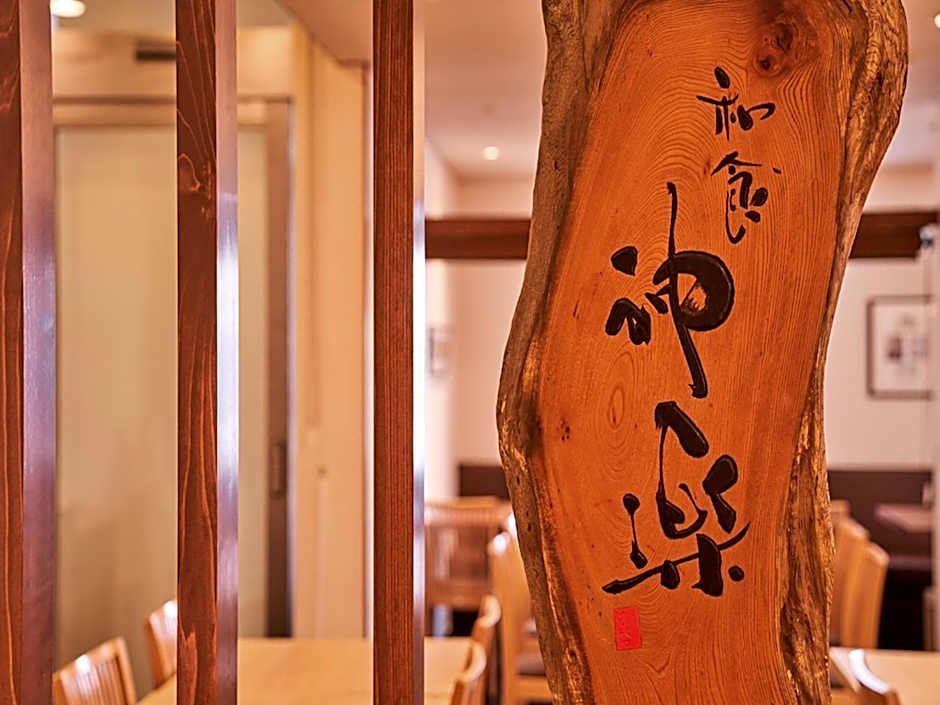 和食
神楽